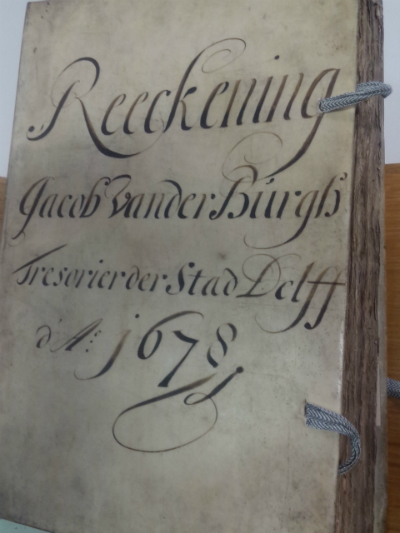 Reeckening
Jacob vander Búrgh
Tresorier der Stad Delff
d'Aº: 1678.